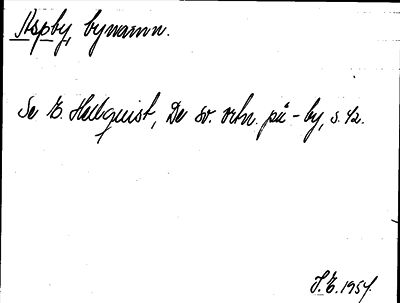 Aspby, bynamn.
Se E. Hellquist, De sv. ortn. på -by, s. 42.
J.E. 1957.